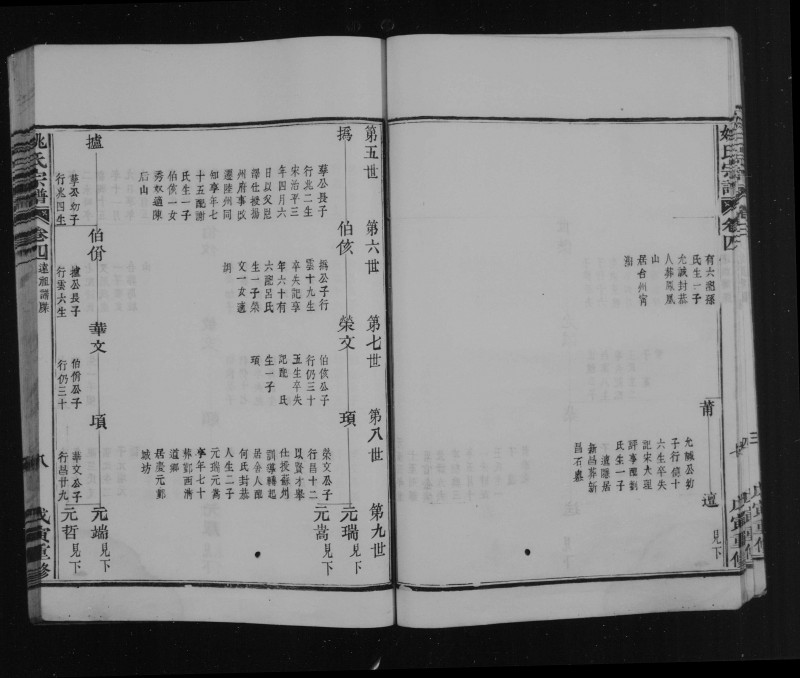 姚氏宗譜
卷四
有六配孫
氏生一子
允誠封恭
人葬鳳凰
山
居台州甯
莆
允誠公幼
子行僎十
六生卒失
記宋大理
評事配劉
氏生一子
遠隱居
新昌葬新
昌石墓
遠
見下
第五世
撝
莘公長子
行兆二生
宋治平三
年四月六
日以父蔭
澤仕授揚
州府事改
遷陸州同
知享年七
十五配謝
氏生一子
伯侅一女
秀奴適陳
后山
第六世
伯侅
撝公子行
雲十九生
卒失記享
年六十有
六配呂氏
生一子榮
文一女適
胡
第七世
榮文
伯侅公子
行仍三十
五生卒失
記配 氏
生一子
頊
第八世
頊
榮文公子
行昌十二
以賢才舉
仕授蘇州
訓導歸起
居舍人配
何氏封恭
人生二子
元瑞元嵩
享年七十
葬鄞西清
道鄉
居慶元鄞
城坊
第九世
元瑞 見下
元嵩 見下
攎
莘公幼子
行兆四生
伯份
攎公長子
行雲六生
華文
伯份公子
行仍三十
頃
華文公子
行昌廿九
元端 見下
元哲 見下
姚氏宗譜
卷四
遠湘譜牒
八
戊寅重修